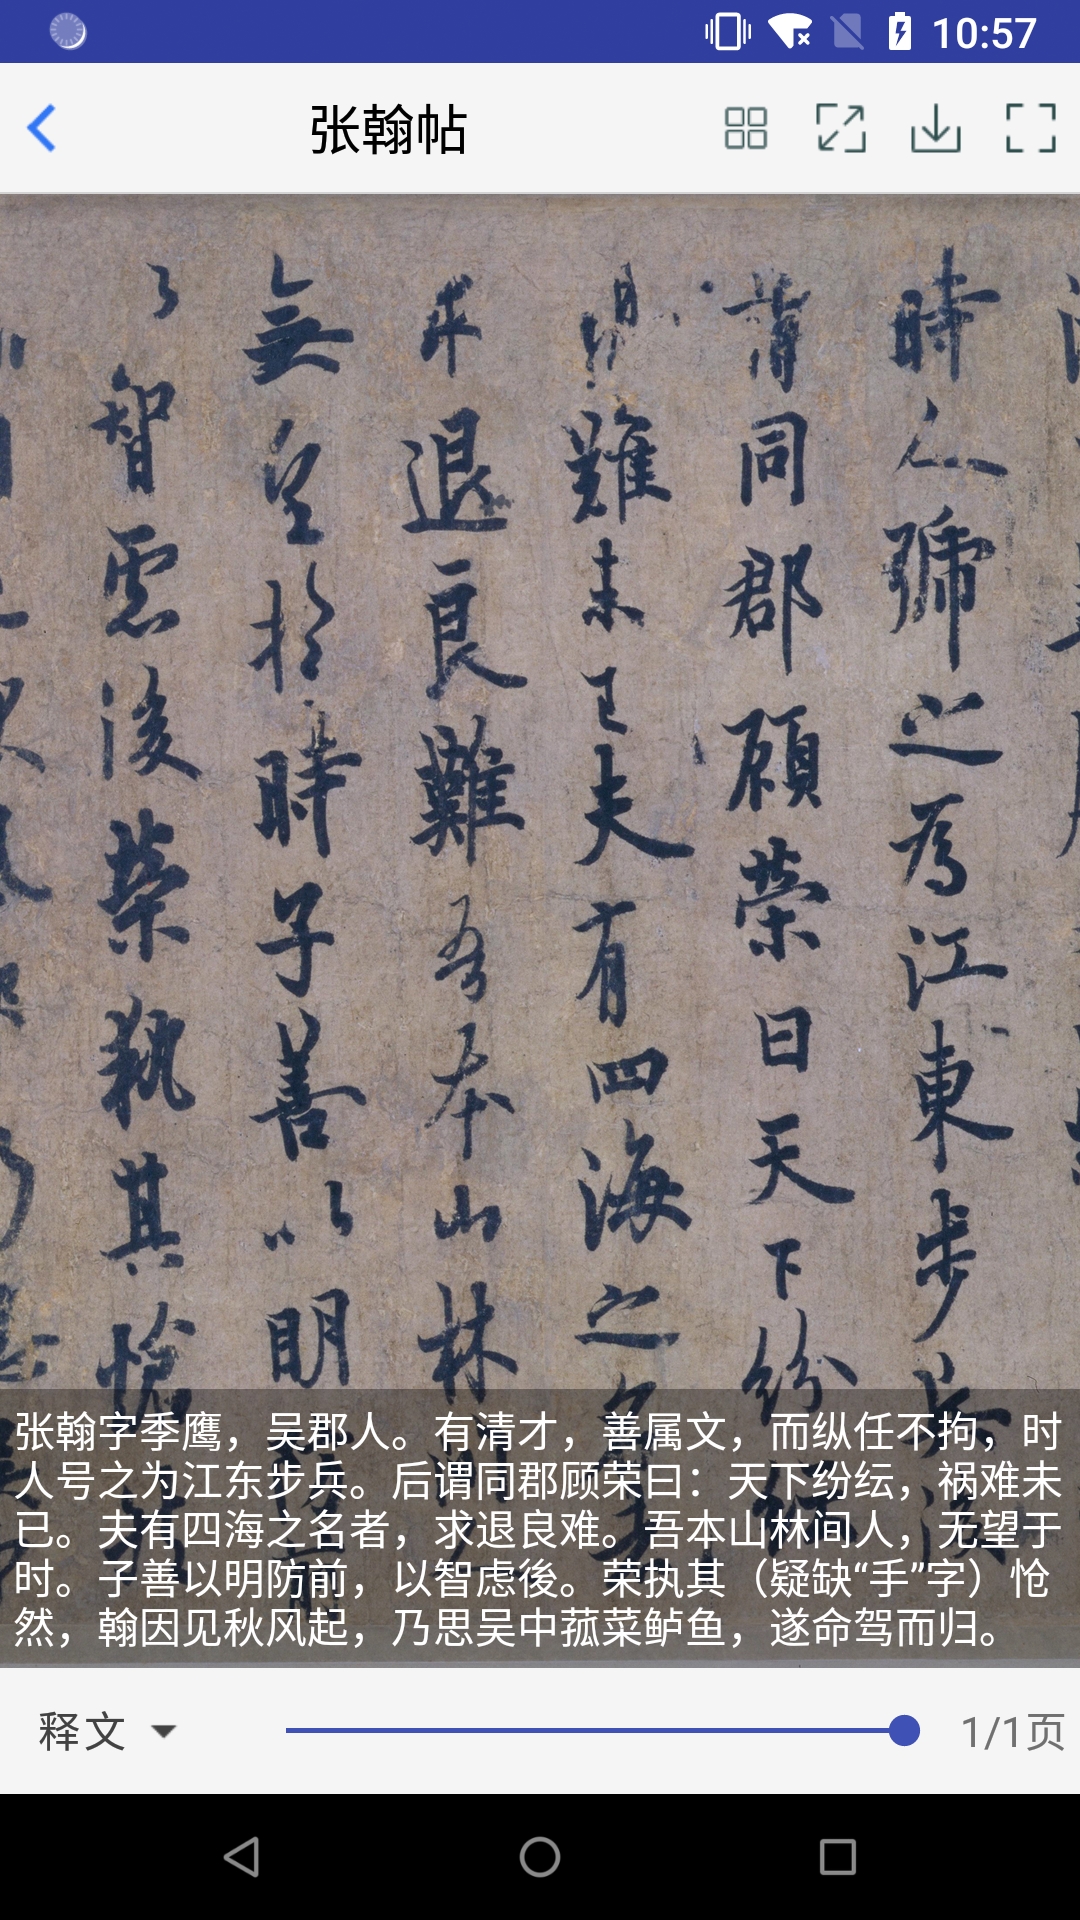 10:57
张翰帖
時人號之為江東步
謂同郡顧榮曰天下紛
難未已夫有四海之
求退良難吾本山林
無望於時子善以明
以智慮後榮執其愴
张翰字季鹰，吴郡人。有清才，善属文，而纵任不拘，时
人号之为江东步兵。后谓同郡顾荣曰：天下纷纭，祸难未
已。夫有四海之名者，求退良难。吾本山林间人，无望于
时。子善以明防前，以智虑後。荣执其（疑缺“手”字）怆
然，翰因见秋风起，乃思吴中菰菜鲈鱼，遂命驾而归。
释文
1/1页